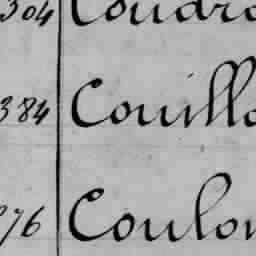 304 Coudr
384 Couill
76 Coulo